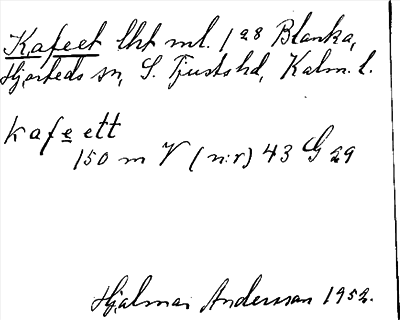 Kafeet lht ml. 128 Blanka,
Hjorteds sn, S. Tjusts hd, Kalm. l.
kafe ett
150 m V (n:r) 43 G 29
Hjalmar Andersson 1952.